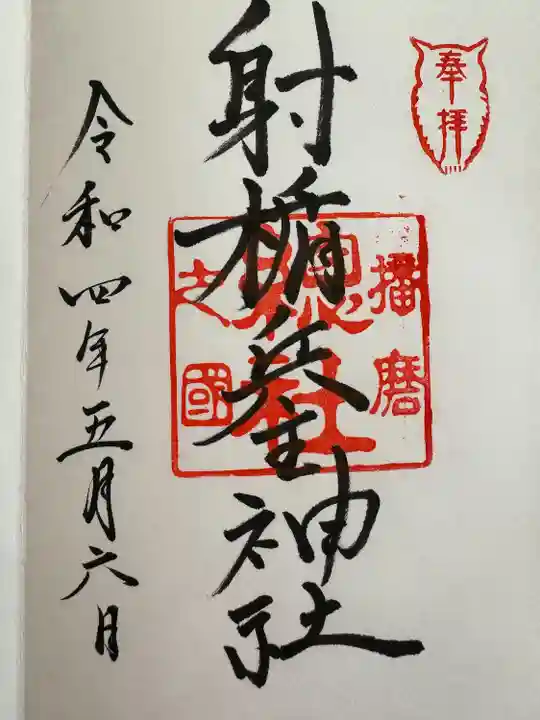 奉拝
射楯兵主神社
播磨
総社
之國
令和四年五月六日